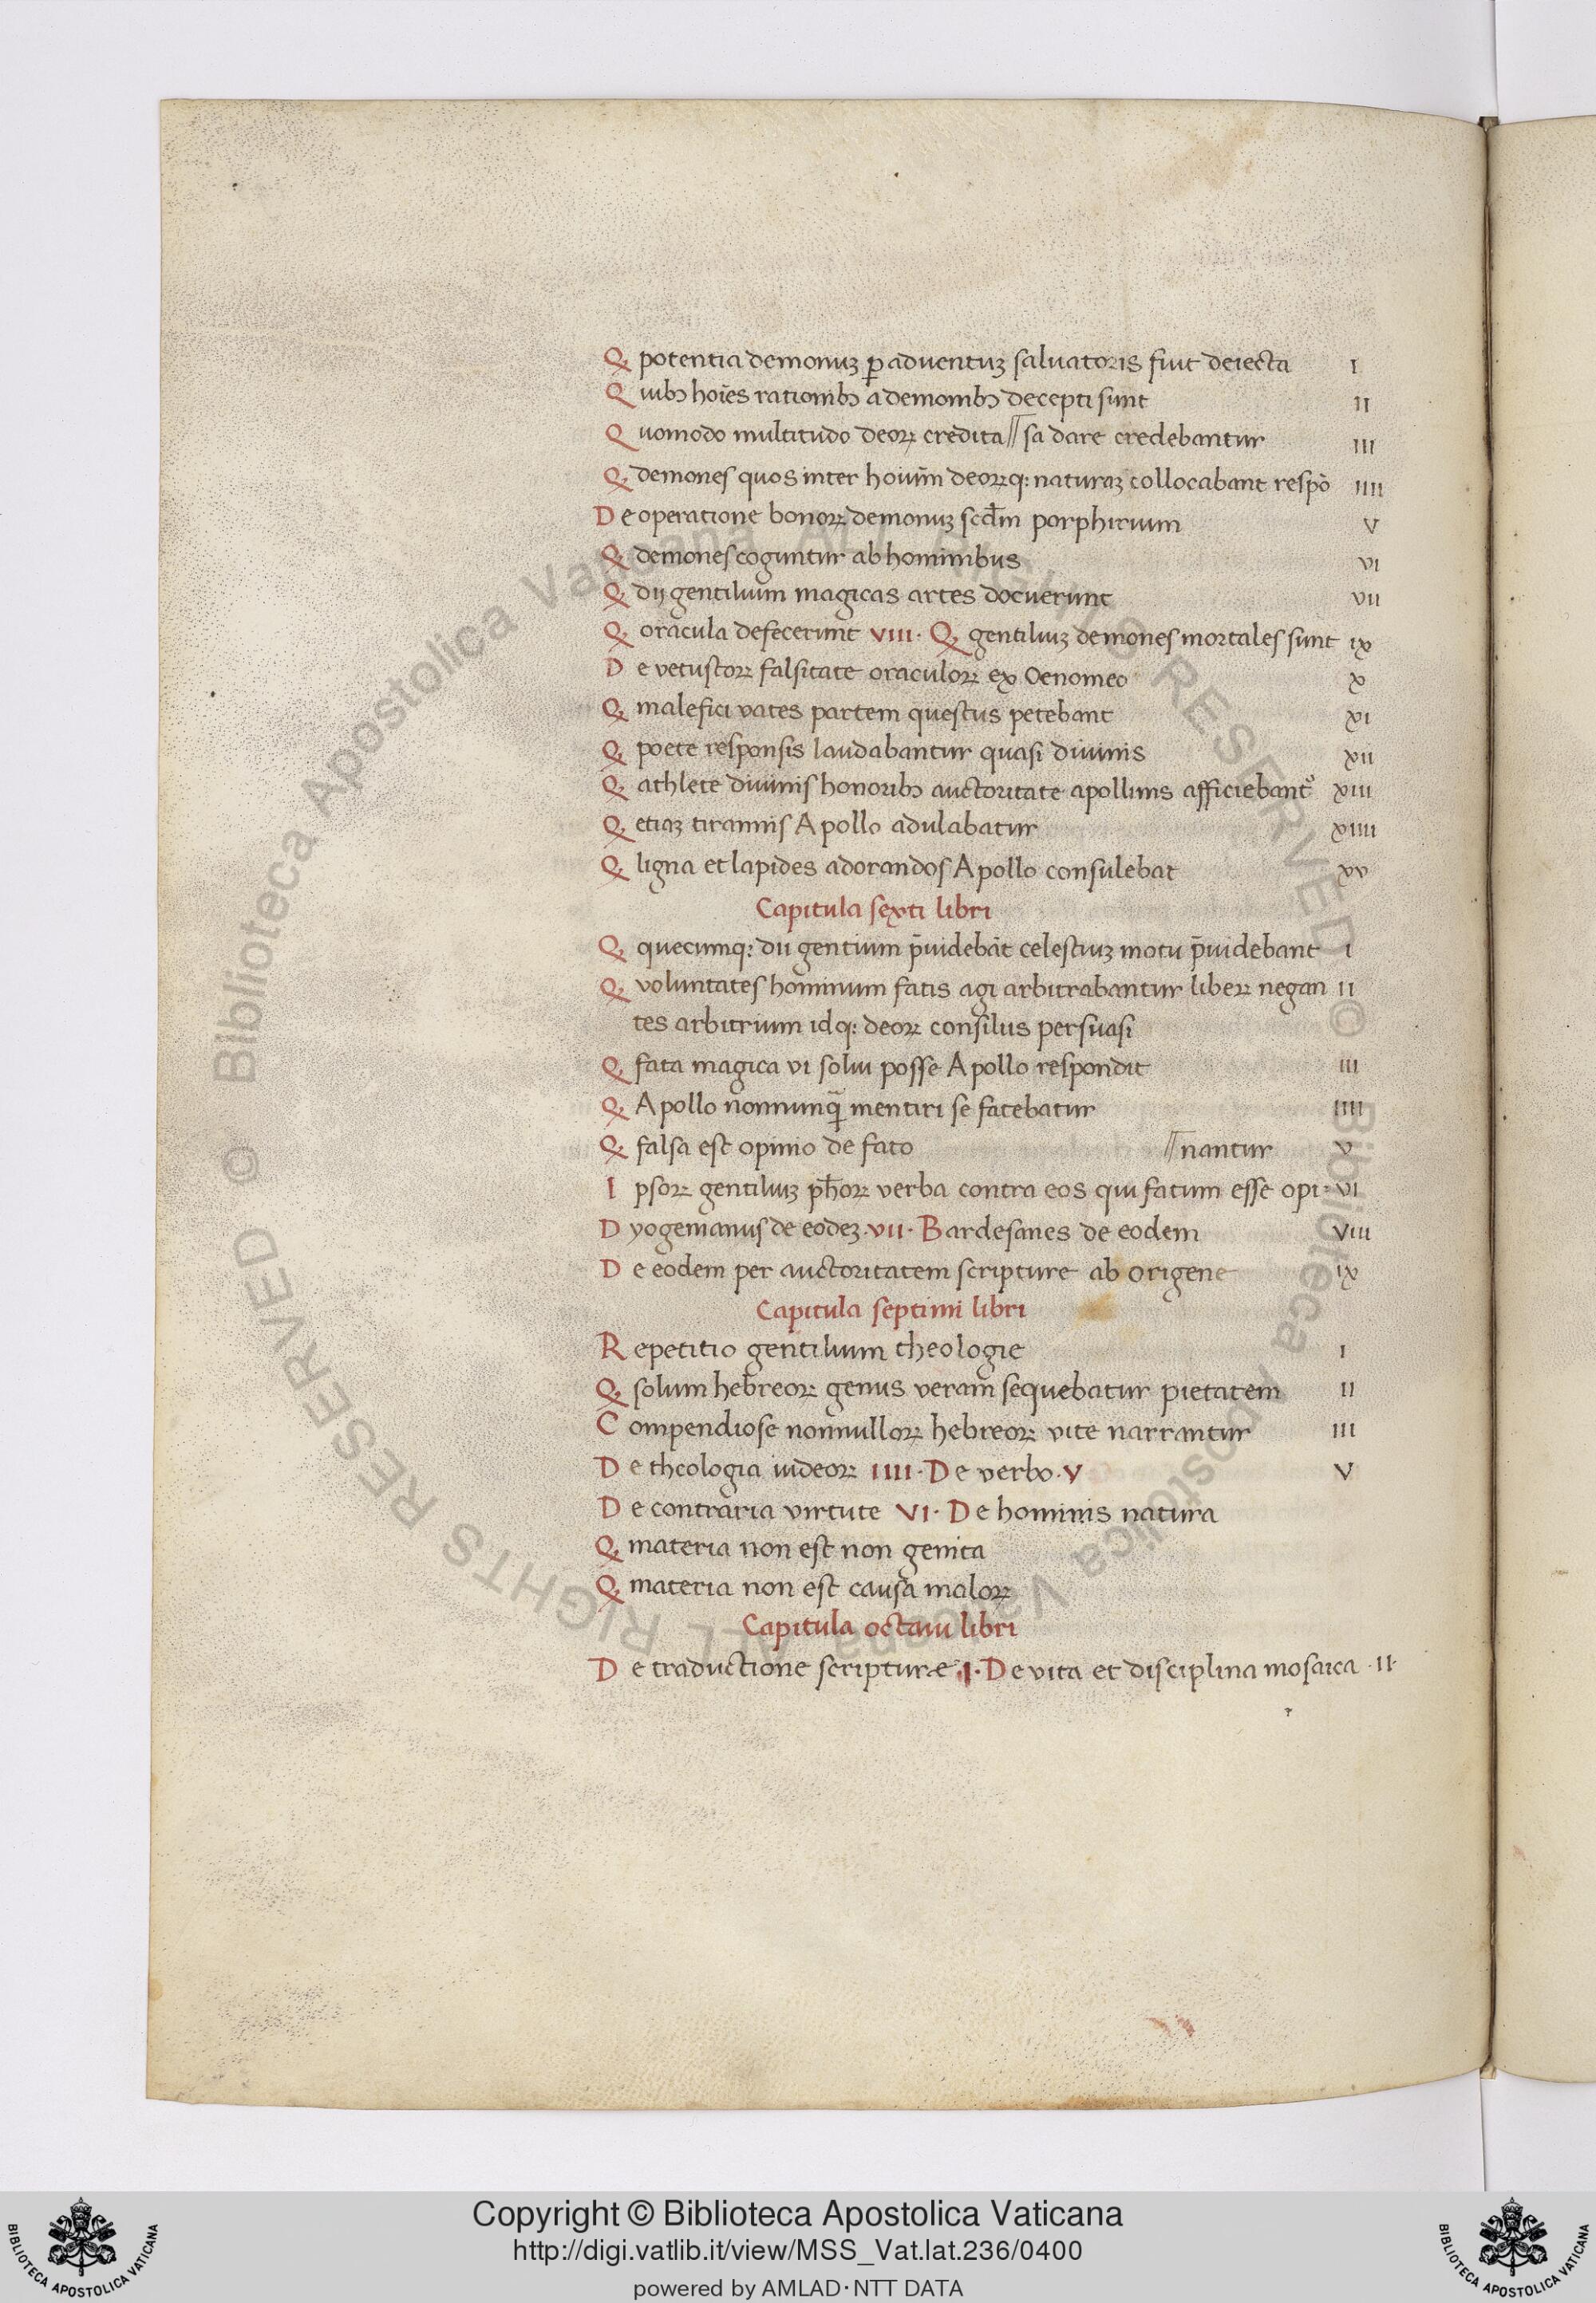 Q, potentia demonuꝫ ꝑ aduentuꝫ saluatoris fuit deiecta I
Q uibꝰ hoīes rationibꝰ a demonibꝰ decepti sunt II
Q uomodo multitudo deoꝝ credita // sa dare credebantur III
Q, demones quos inter hoium̄ deoꝝq: naturaꝫ collocabant respō IIII
D e operatione bonoꝝ demonuꝫ scd̄m porphirium V
Q, demones coguntur ab hominibus VI
Q, dij gentilium magicas artes docuerunt VII
Q, oracula defecerunt VIII· Q, gentiliuꝫ demones mortales sunt IX
D e vetustoꝝ falsitate oraculoꝝ ex Oenomeo X
Q, malefici vates partem questus petebant XI
Q, poete responsis laudabantur quasi diuinis XII
Q, athlete diuinis honoribꝰ auctoritate apollinis afficiebant᷑ XIII
Q, etiaꝫ tirannis Apollo adulabatur XIIII
Q, ligna et lapides adorandos Apollo consulebat XV
Capitula sexti libri
Q, quecumq: dii gentium p̄uidebāt celestiuꝫ motu p̄uidebant I
Q, voluntates hominum fatis agi arbitrabantur libeꝝ negan II
tes arbitrium idq: deoꝝ consiliis persuasi
Q, fata magica vi solui posse Apollo respondit III
Q, Apollo nonnunq̄ mentiri se fatebatur IIII
Q, falsa est opinio de fato // nantur V
I psoꝝ gentiliuꝫ ph̄oꝝ verba contra eos qui fatum esse opi- VI
D yogenianus de eodeꝫ· VII· Bardesanes de eodem VIII
D e eodem per auctoritatem scripture ab origene IX
Capitula septimi libri
R epetitio gentilium theologie I
Q, solum hebreoꝝ genus veram sequebatur pietatem II
C ompendiose nonnulloꝝ hebreoꝝ vite narrantur III
D e theologia iudeoꝝ IIII· De verbo· V V
D e contraria virtute VI· De hominis natura
Q, materia non est non genita
Q, materia non est causa maloꝝ
Capitula octaui libri
D e traductione scripturæ· I· De vita et disciplina mosaica ·II·
Copyright © Biblioteca Apostolica Vaticana
http://digi.vatlib.it/view/MSS_Vat.lat.236/0400
powered by AMLAD·NTT DATA